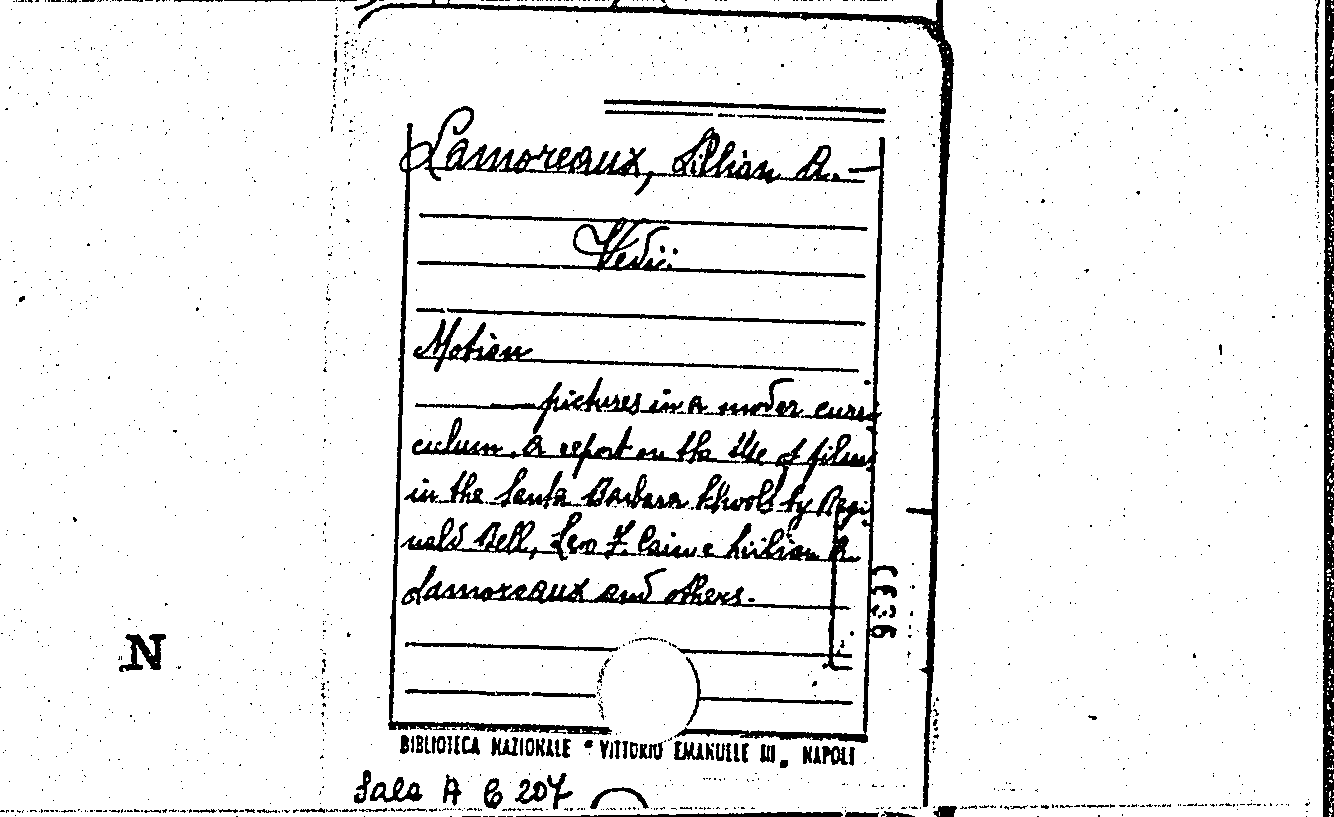 Lamoreaux, Lillian A. —
Vedi:
Motion
pictures in a moder curri
culum. A report on the Use of films
in the Santa Barbara Schools by Regi
nald Bell, Leo F. Cain e Lillian A.
Lamoreaux and others.
BIBLIOTECA NAZIONALE " VITTORIO EMANUELE III „ NAPOLI
Sala A C 207
N